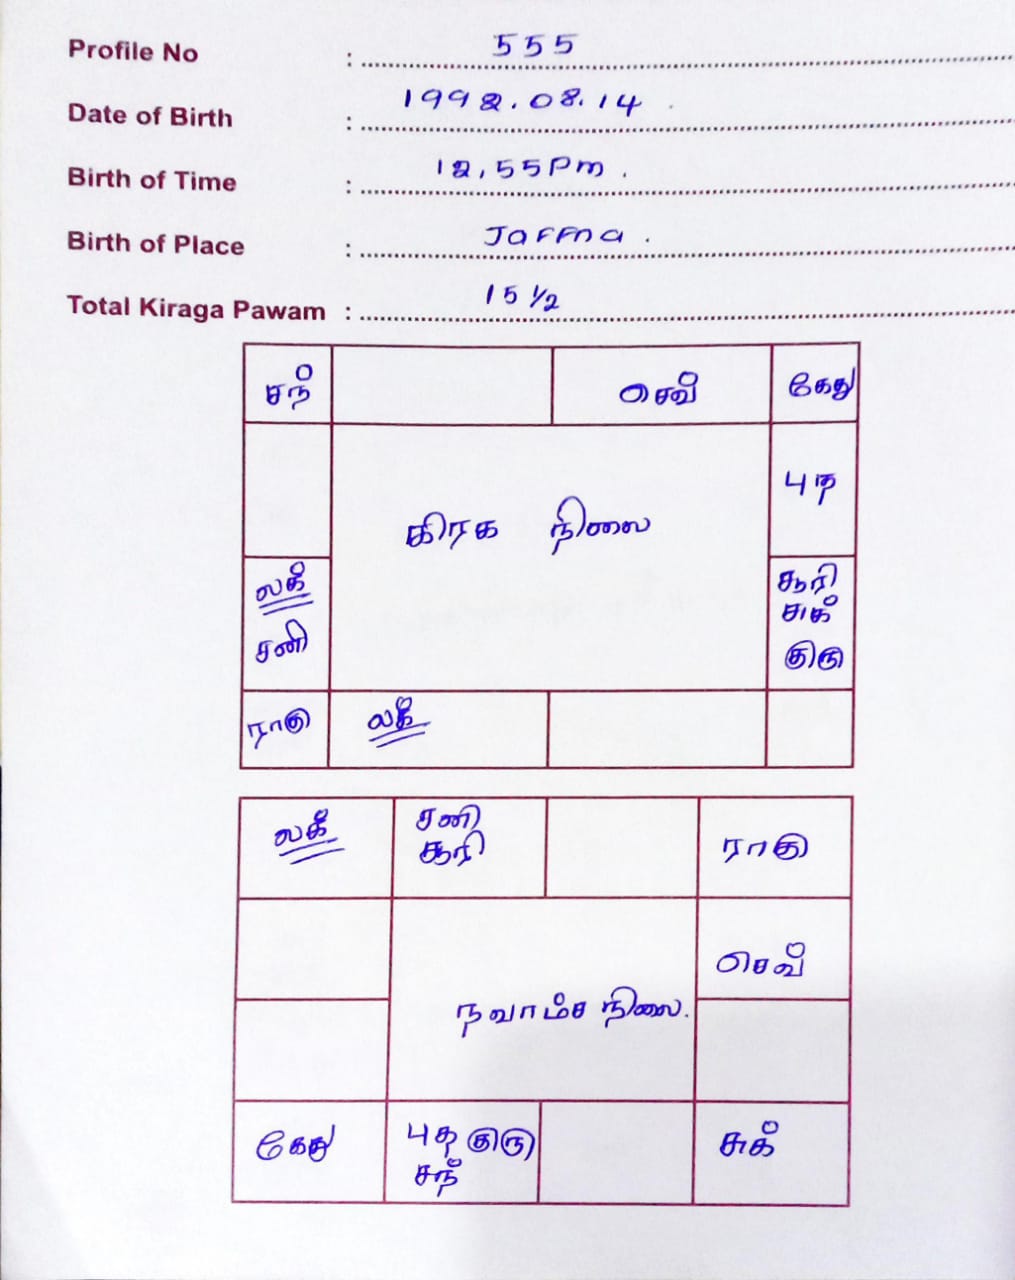 Profile No : 555
Date of Birth : 1992.08.14
Birth of Time : 12,55Pm.
Birth of Place : Jaffna.
Total Kiraga Pawam : 15 1/2
சந் செவ் கேது
புத
கிரக நிலை
லக் சூரி
சுக்
சனி குரு
ராகு லக்
லக் சனி ராகு
சூரி
செவ்
நவாம்ச நிலை.
கேது புத குரு சுக்
சந்